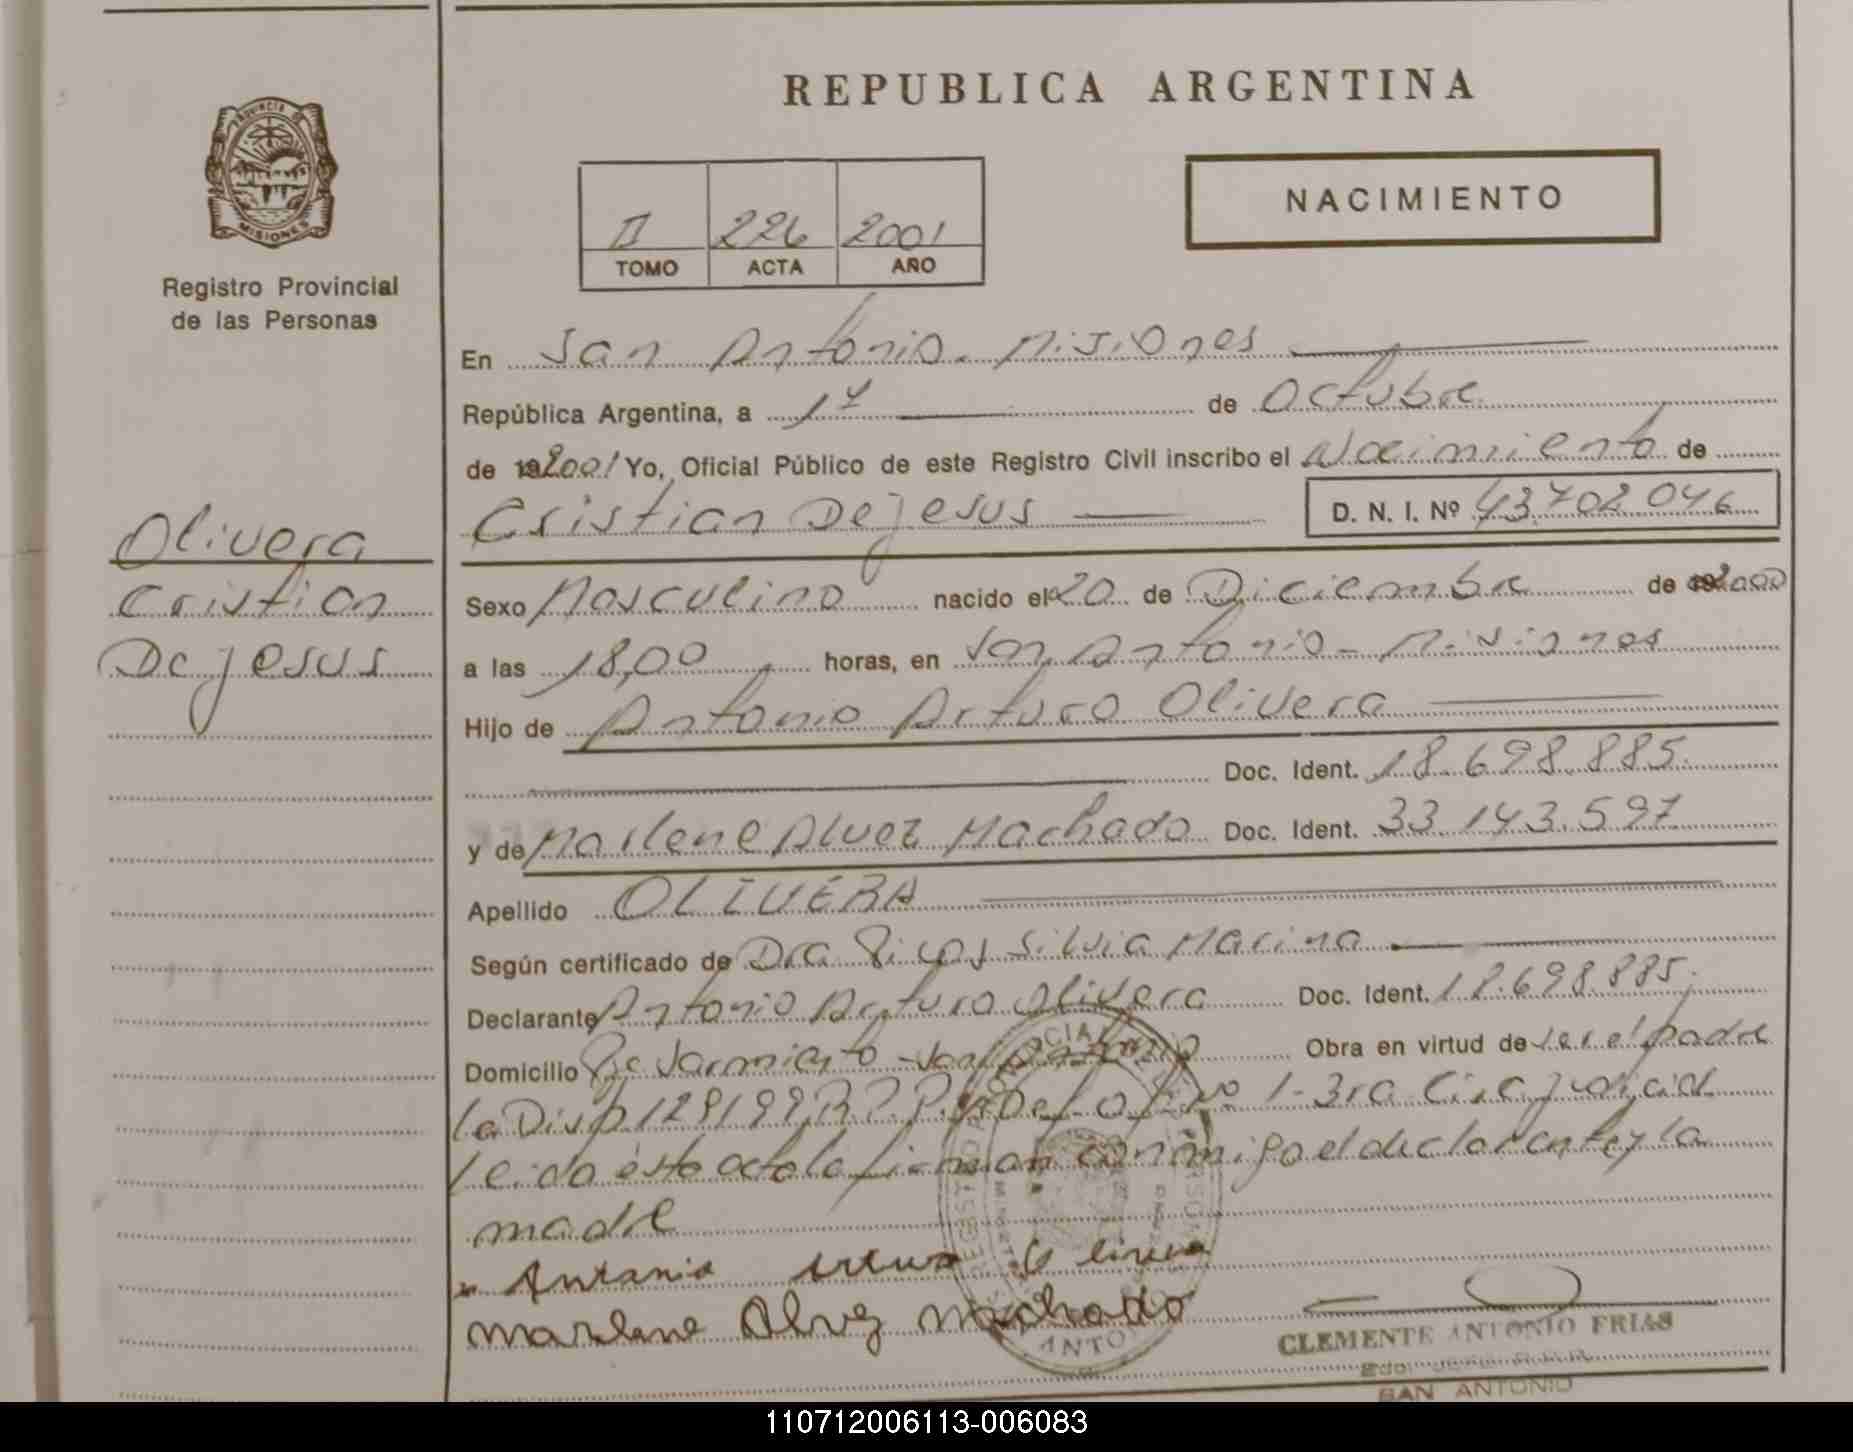 REPUBLICA ARGENTINA
PROVINCIA DE
MISIONES
Registro Provincial
de las Personas
NACIMIENTO
II 226 2001
TOMO ACTA AÑO
En San Antonio. Misiones
República Argentina, a 17 de Octubre
de 192001 Yo, Oficial Público de este Registro Civil inscribo el Nacimiento de
Cristian De jesus D. N. I. Nº 43.702.046
Olivera
Cristian
De jesus
Sexo Masculino nacido el 20 de Diciembre de 192000
a las 18,00 horas, en San Antonio - Misiones
Hijo de Antonio Arturo Olivera
Doc. Ident. 18.698.885.
y de Marlene Alvez Machado Doc. Ident. 33.143.597
Apellido OLIVERA
Según certificado de Dra Silvia Marina
Declarante Antonio Arturo Olivera Doc. Ident. 18.698.885.
Domicilio Sarmiento - San Antonio Obra en virtud de ser el padre
La Disp 129/99 R.P.P. y Def. Of. Nº 1 - 3ra Circ judicial
Leida esta acta la firman conmigo el declarante y la
madre
Antonio Arturo Olivera
Marlene Alvez Machado
CLEMENTE ANTONIO FRIAS
SAN ANTONIO
110712006113-006083